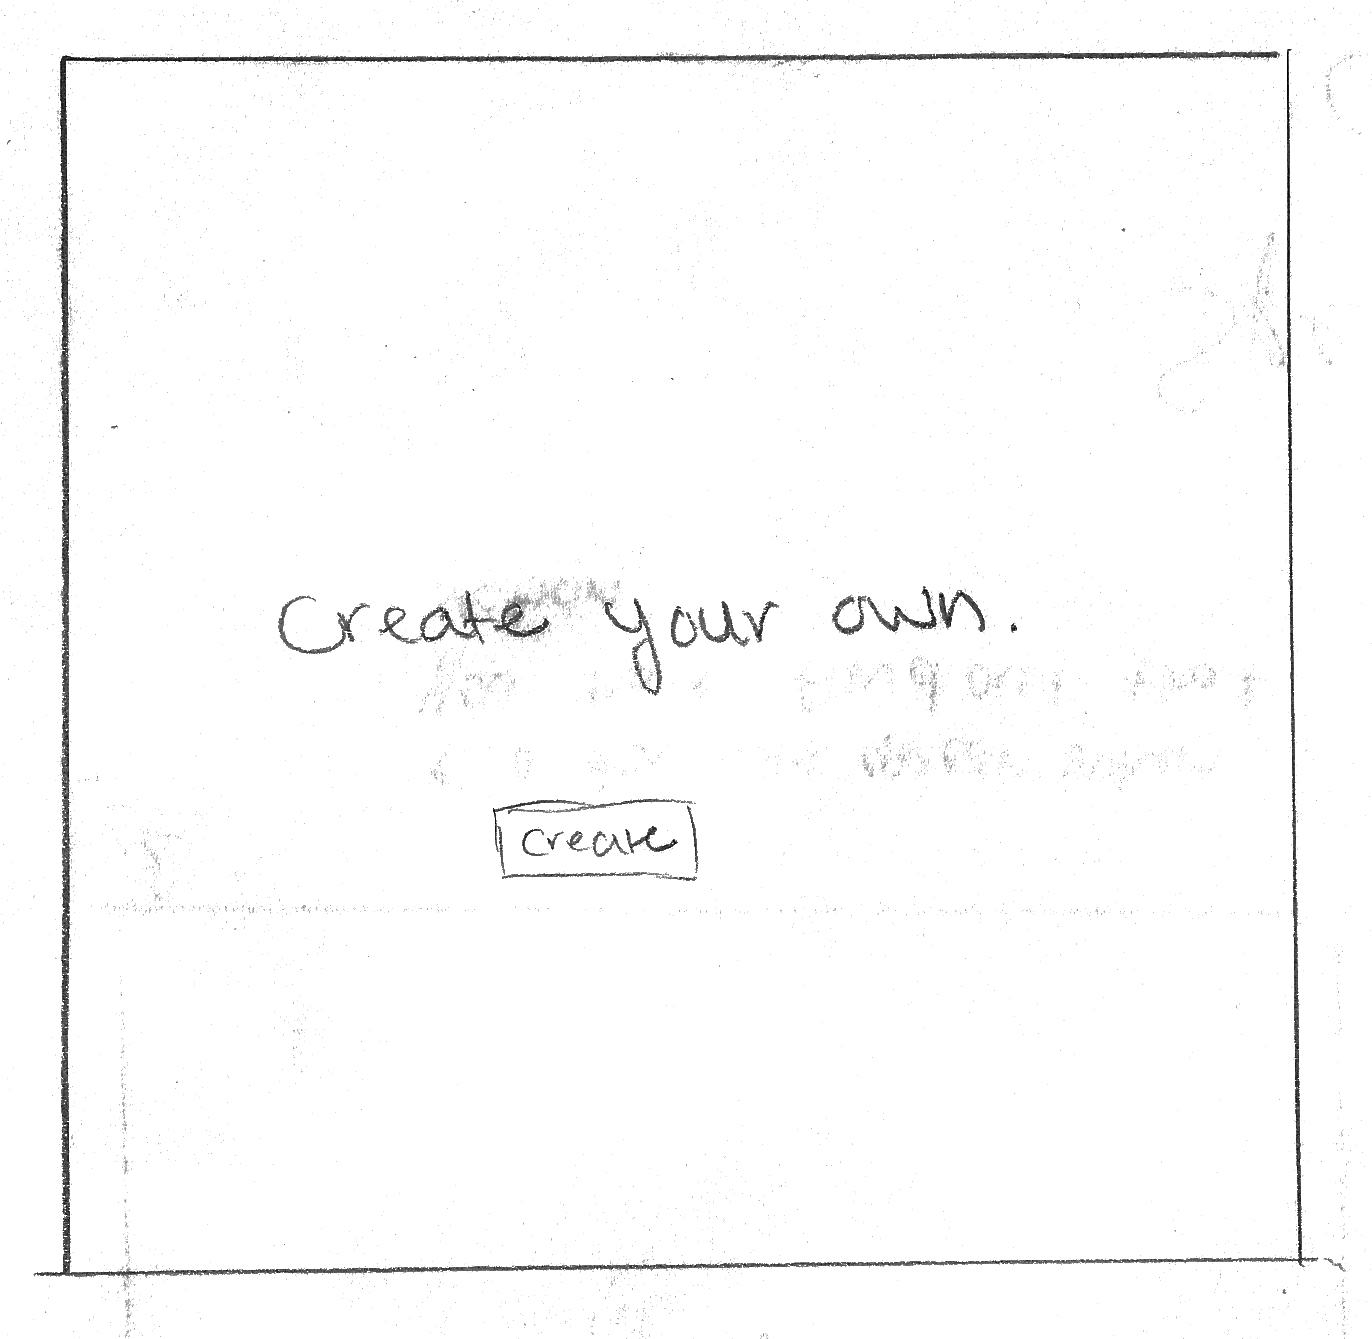 Create your own.
create